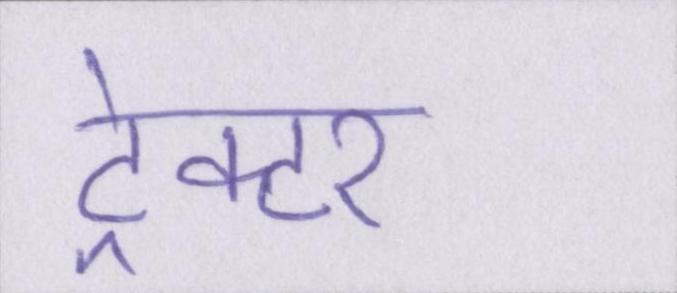 ट्रेक्टर